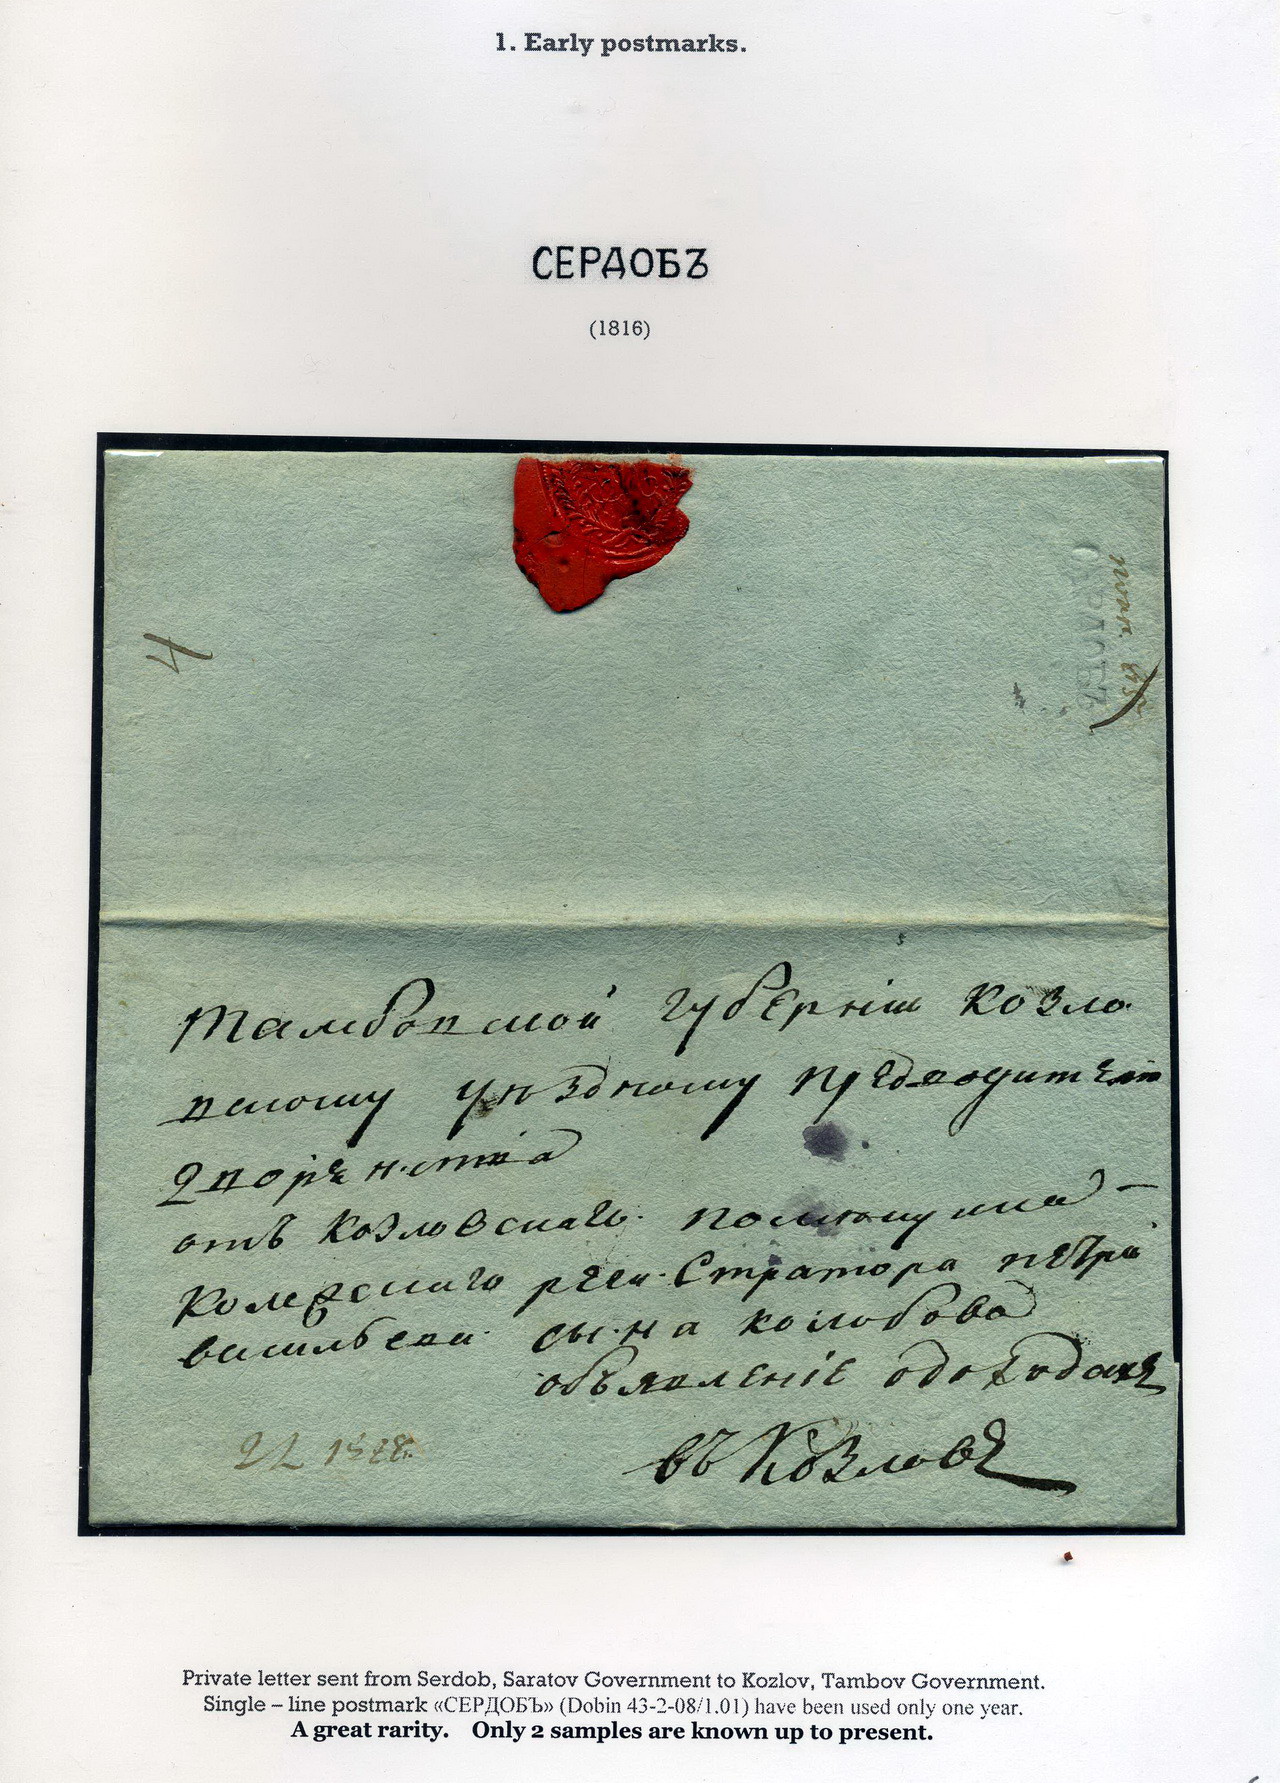 1. Early postmarks.
СЕРДОБЪ
(1816)
4
СЕРДОБЪ
Тамбовской губерніи Козло
вскому уѣздному предводителю
дворенства
отъ Козловскаго помющика
Колежскаго регистратора Петра
васильева сы-на колобова
объявленіе одоходахъ
въ Козлове
Private letter sent from Serdob, Saratov Government to Kozlov, Tambov Government.
Single – line postmark «СЕРДОБЪ» (Dobin 43-2-08/1.01) have been used only one year.
A great rarity. Only 2 samples are known up to present.